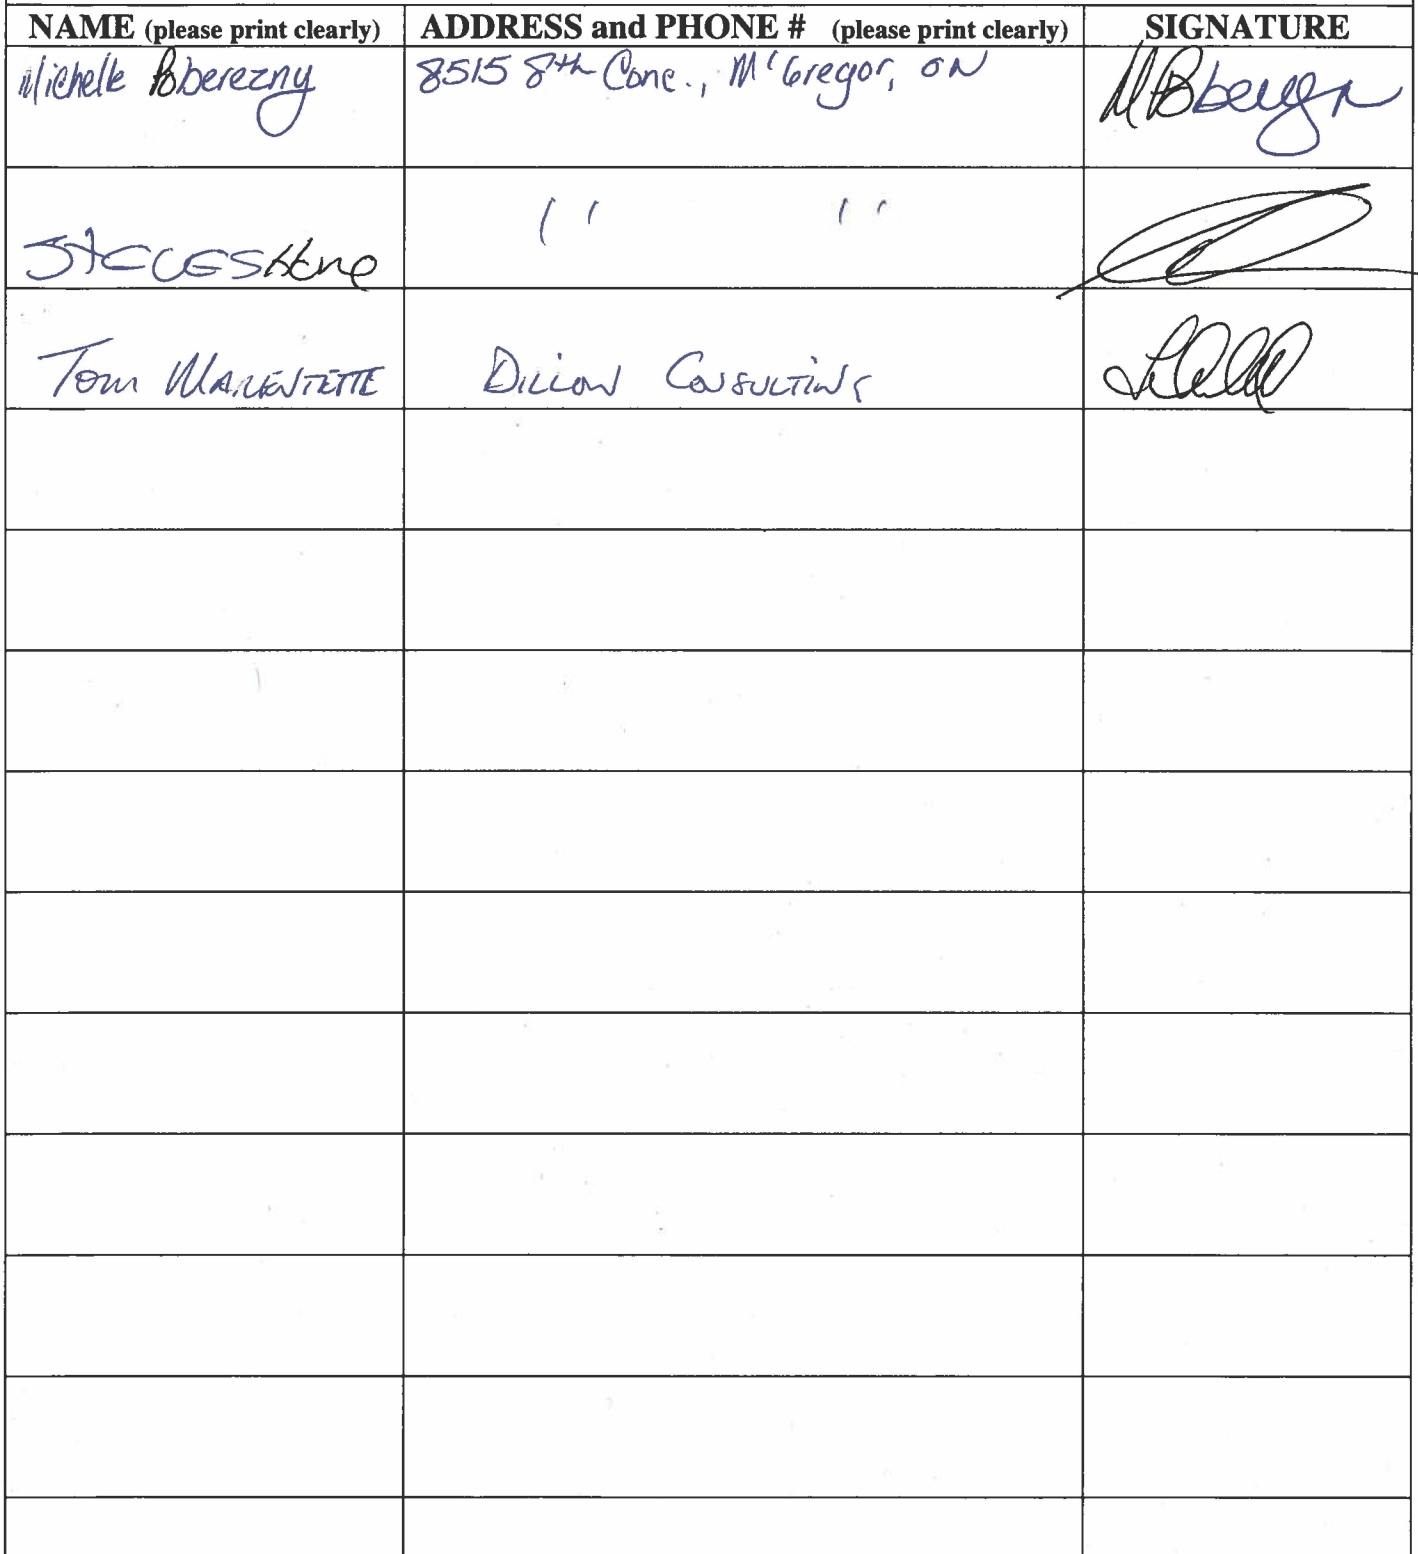 NAME (please print clearly) ADDRESS and PHONE # (please print clearly) SIGNATURE
Michelle Bberezny 8515 8th Conc., McGregor, ON
" "
Tom MARENTETTE DILLON CONSULTING